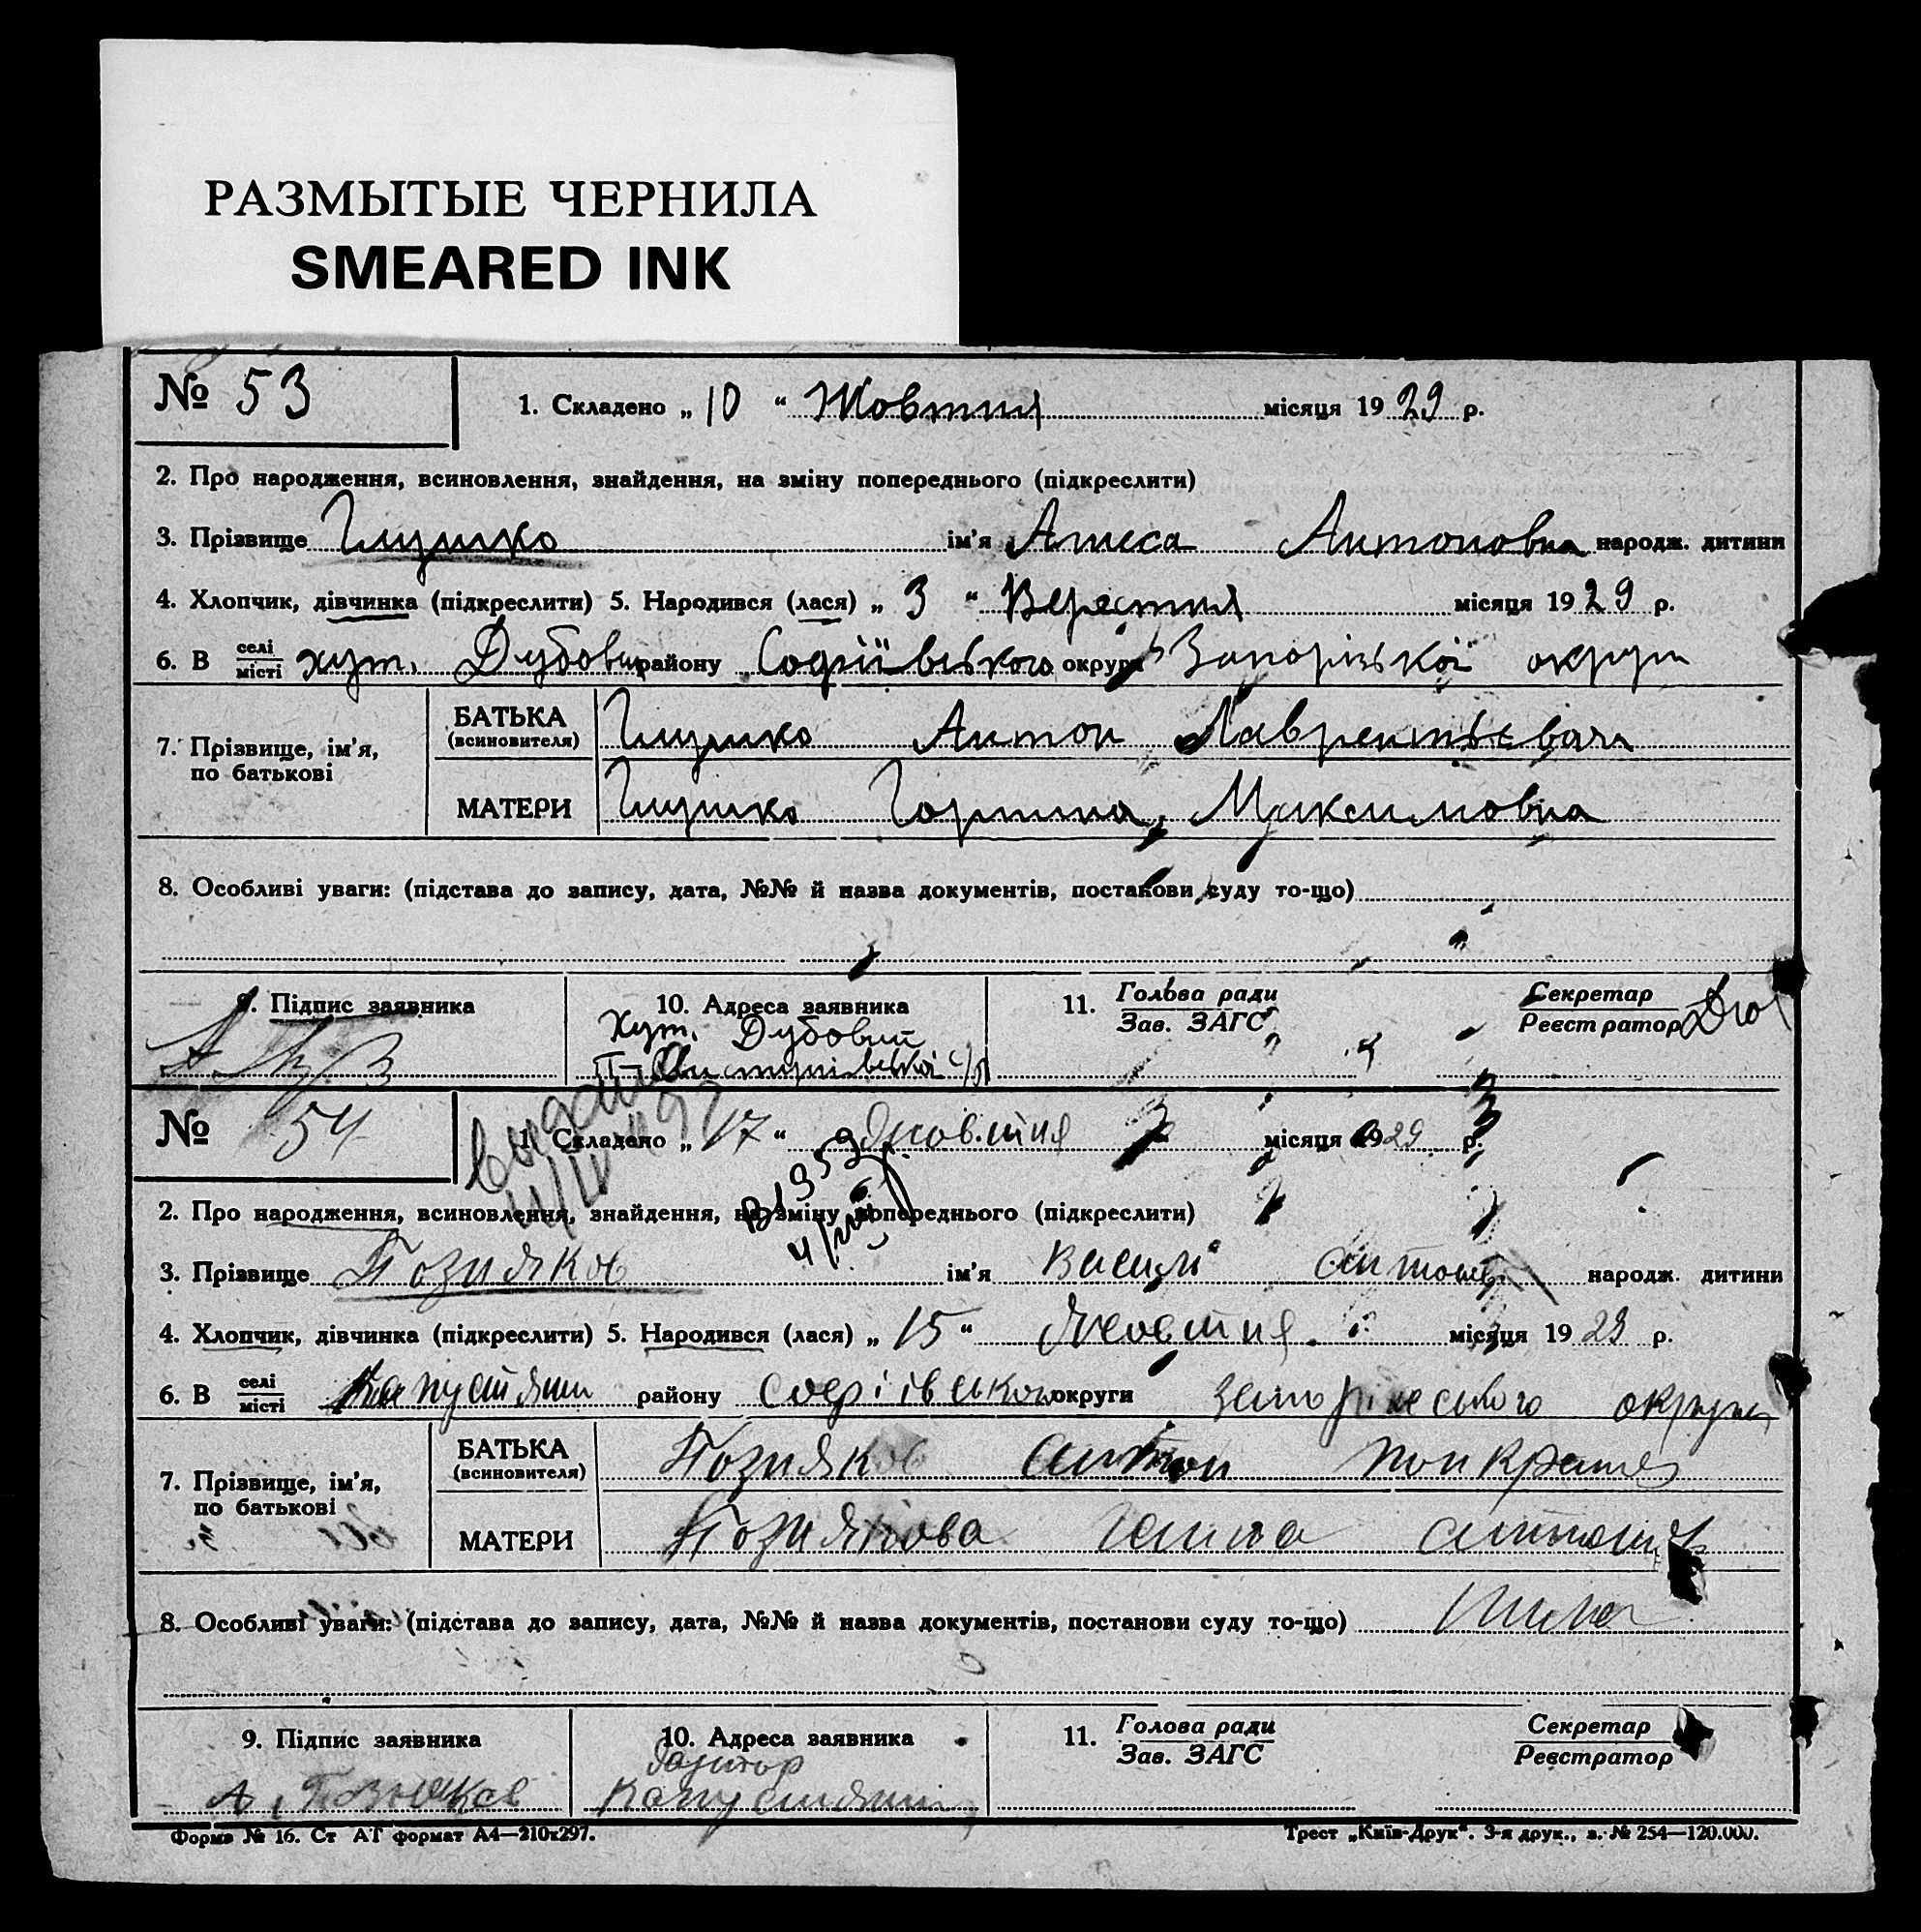 РАЗМЫТЫЕ ЧЕРНИЛА
SMEARED INK
№ 53
1. Складено „ 10 “ Жовтня місяця 1929 р.
2. Про народження, всиновлення, знайдення, на зміну попереднього (підкреслити)
3. Прізвище Глушко ім'я Антоновна народж. дитини
4. Хлопчик, дівчинка (підкреслити) 5. Народився (лася) „ 3 “ Верестня місяця 1929 р.
6. В селі місті хут. Дубовий району Софіївського округи Запорізької округи
7. Прізвище, ім'я, по батькові
БАТЬКА (всиновителя) Глушко Антон Лаврентьевич
МАТЕРИ Глушко Горпина Максимовна
8. Особливі уваги: (підстава до запису, дата, №№ й назва документів, постанови суду то-що)
9. Підпис заявника
10. Адреса заявника
Хут. Дубовий
11. Голова ради Зав. ЗАГС
Секретар Реєстратор
№ 54
1. Складено „ 17 “ Жовтня місяця 1929 р.
2. Про народження, всиновлення, знайдення, на зміну попереднього (підкреслити)
3. Прізвище Позняков ім'я Василь народж. дитини
4. Хлопчик, дівчинка (підкреслити) 5. Народився (лася) „ 15 “ Жовтня місяця 1929 р.
6. В селі місті Капустяни району Софіївського округи округи
7. Прізвище, ім'я, по батькові
БАТЬКА (всиновителя) Позняков Антон
МАТЕРИ Познякова Ганна
8. Особливі уваги: (підстава до запису, дата, №№ й назва документів, постанови суду то-що)
9. Підпис заявника
10. Адреса заявника
хутор
Капустяни
11. Голова ради Зав. ЗАГС
Секретар Реєстратор
Форма № 16. Ст АТ формат А4—210х297.
Трест „Київ-Друк“. 3-я друк., з. № 254—120.000.